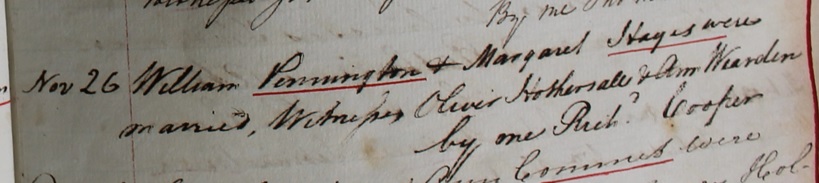 By me
Nov 26 William Pennington & Margaret Hayes were
married, Witnesses Oliver Hothersall & Ann Wearden
by me Richd. Cooper
Commes were
Hol-